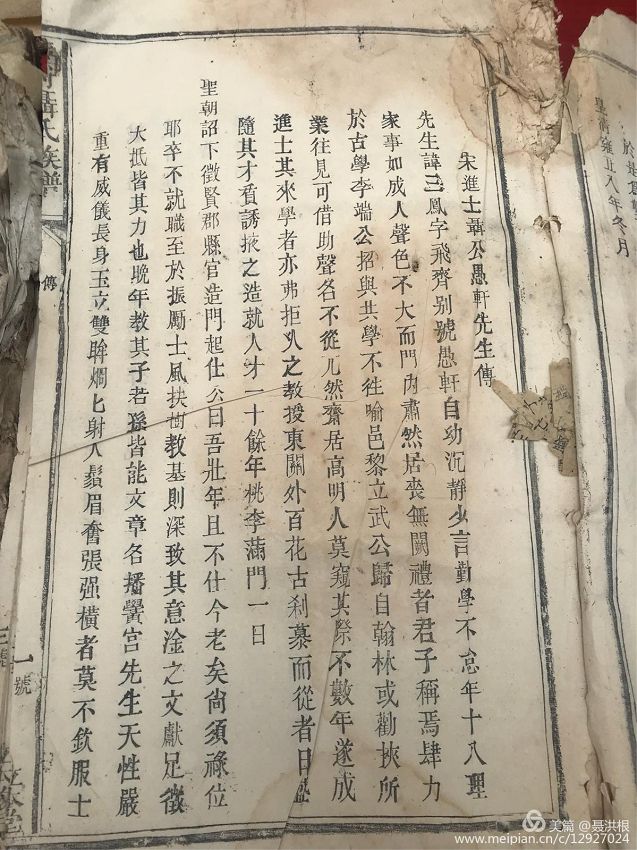 宋進士聶公愚軒先生傳
先生諱三鳳字飛齊别號愚軒自幼沉静少言勤學不怠年十八理
家事如成人聲色不大而門內肅然居喪無闕禮者君子稱焉肆力
於古學李端公招與共學不徃喻邑黎立武公歸自翰林或勸挾所
業往見可借助聲名不從兀然齋居高明人莫窺其際不數年遂成
進士其來學者亦弗拒火之教授東關外百花古刹慕而從者日盛
隨其才質誘掖之造就人才一十餘年桃李滿門一日
聖朝詔下徵賢郡縣官造門起仕公曰吾壯年且不仕今老矣尙須祿位
耶卒不就職至於振勵士風扶樹教基則深致其意淦之文獻足徵
大抵皆其力也晩年教其子若孫皆能文章名播黌宫先生天性嚴
重有威儀長身玉立雙眸爛匕射人鬚眉奮張强橫者莫不欽服士
氏族譜
傳
一號
三號
皇清雍正八年冬月
美篇 @聶洪根
www.meipian.cn/c/12927024